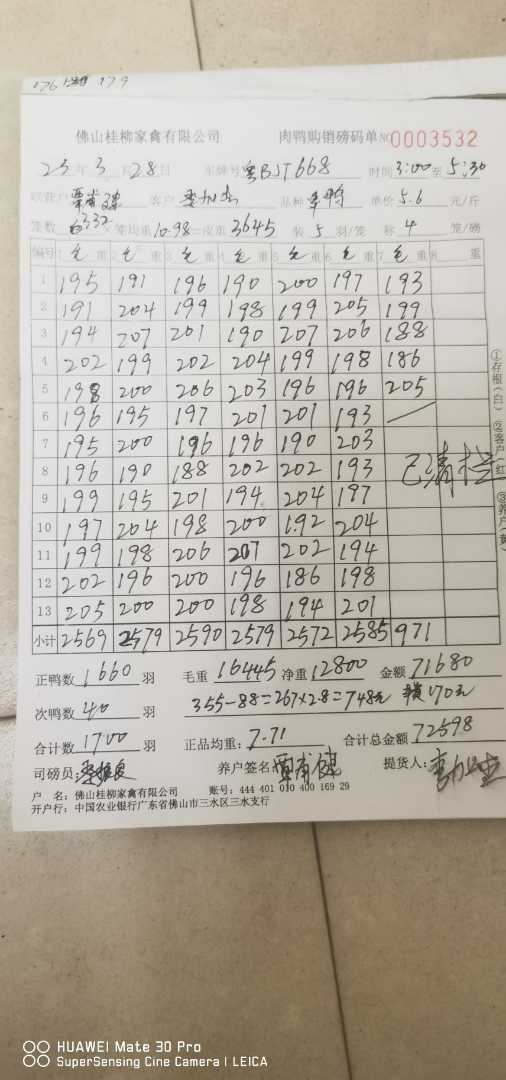 176 179
佛山桂柳家禽有限公司 肉鸭购销磅码单 NO 0003532
23年3月28日 车牌号 粤BJT668 时间3:00至5:30
客户 品种 单价5.6元/斤
笼数 332 ×笼均重10.98=皮重3645 装5羽/笼 称4笼/磅
编号 1毛重 2毛重 3毛重 4毛重 5毛重 6毛重 7毛重 8 重
1 195 191 196 190 200 197 193
2 191 204 199 198 199 205 199
3 194 207 201 190 207 206 188
4 202 199 202 204 199 198 186
5 198 200 206 203 196 196 205
6 196 195 197 201 201 193
7 195 200 196 196 190 203
8 196 190 188 202 202 193 已清栏
9 199 195 201 194 204 197
10 197 204 198 200 192 204
11 199 198 206 207 202 194
12 202 196 200 196 186 198
13 205 200 200 198 194 201
小计 2569 2579 2590 2579 2572 2585 971
①存根(白) ②客户(红) ③养户(黄)
正鸭数 1660 羽 毛重 16445 净重 12800 金额 71680
次鸭数 40 羽 355-88=267×2.8=748元 170元
合计数 1700 羽 正品均重: 7.71 合计总金额 72598
司磅员: 养户签名: 提货人:
户 名: 佛山桂柳家禽有限公司 账号: 444 401 010 400 169 29
开户行: 中国农业银行广东省佛山市三水区三水支行
HUAWEI Mate 30 Pro
SuperSensing Cine Camera | LEICA